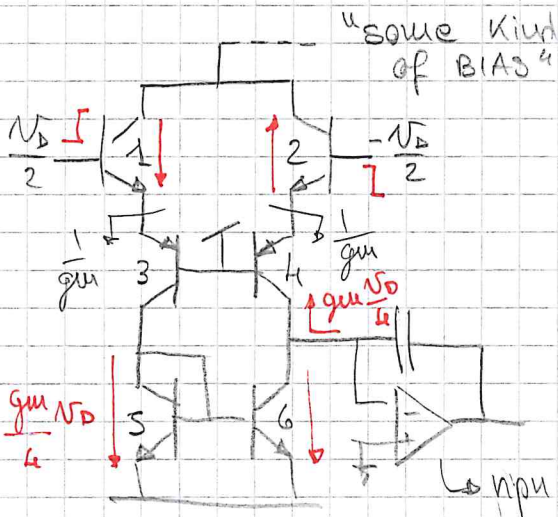 "some kind
of BIAS"
VD/2
1
2
-VD/2
1/gm
3
4
1/gm
gm VD/4
gm/4 VD
5
6
-
+
npn